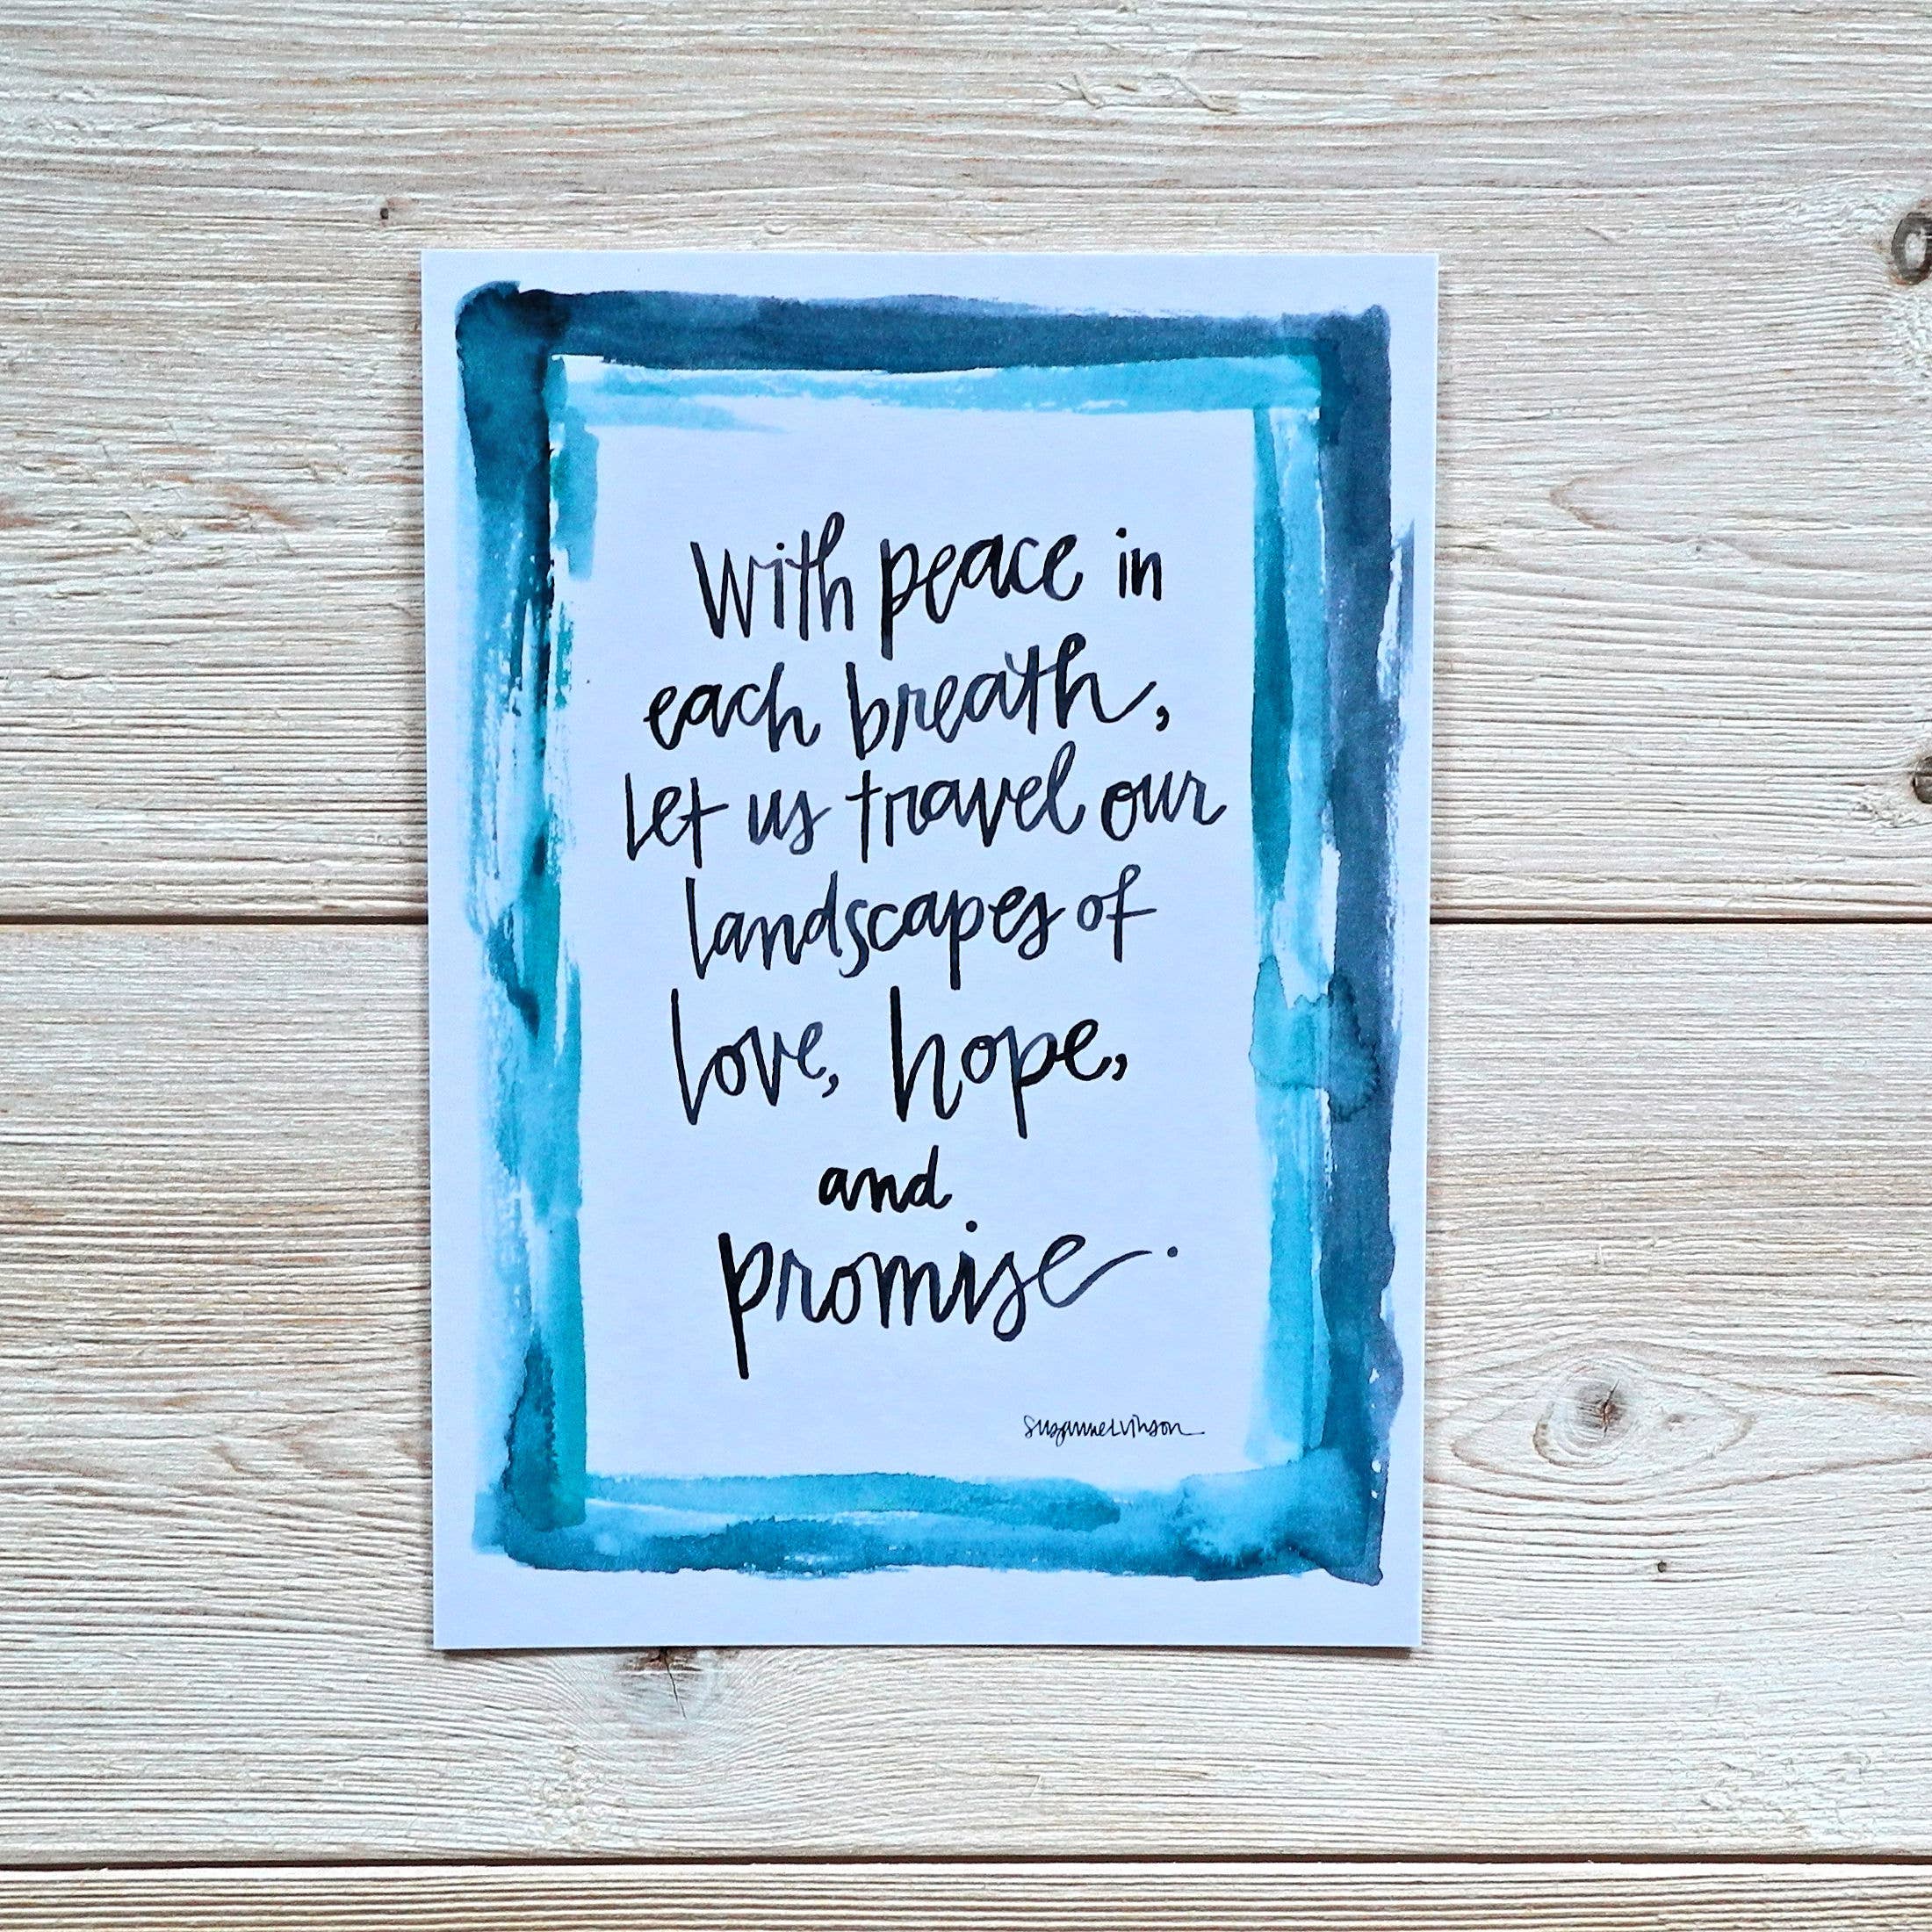 With peace in
each breath,
let us travel our
landscapes of
love, hope,
and
promise.
SuzanneLVinson